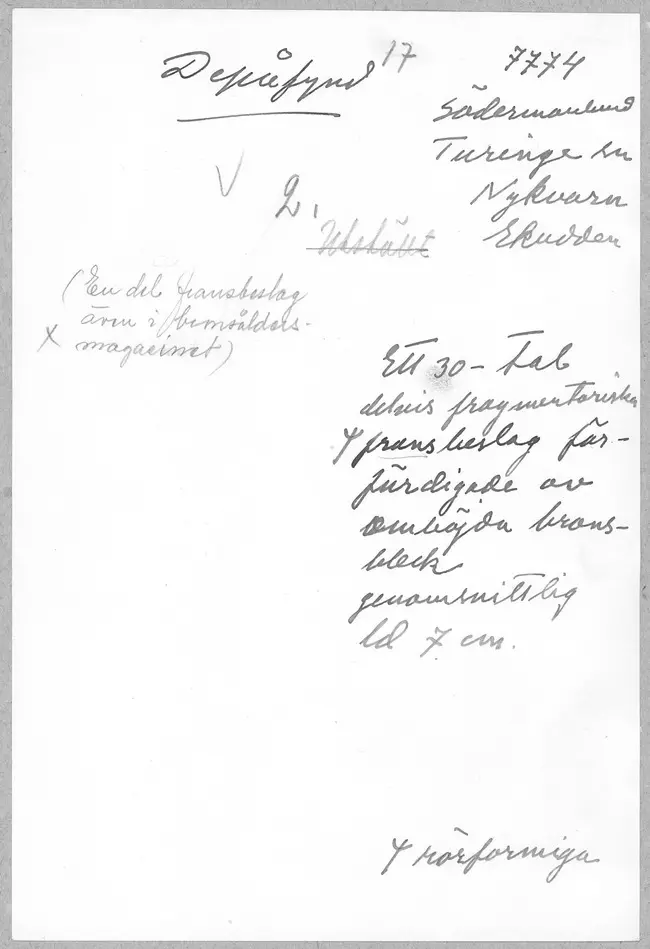 Depåfynd
17
7774
Södermanland
Turinge sn
Nykvarn
Ekudden
V
2.
Utställt
(En del fransbeslag
även i bronsålders-
X magasinet)
Ett 30-tal
delvis fragmentariska
fransbeslag för-
färdigade av
omböjda brons-
bleck
genomsnittlig
ld 7 cm.
rörformiga